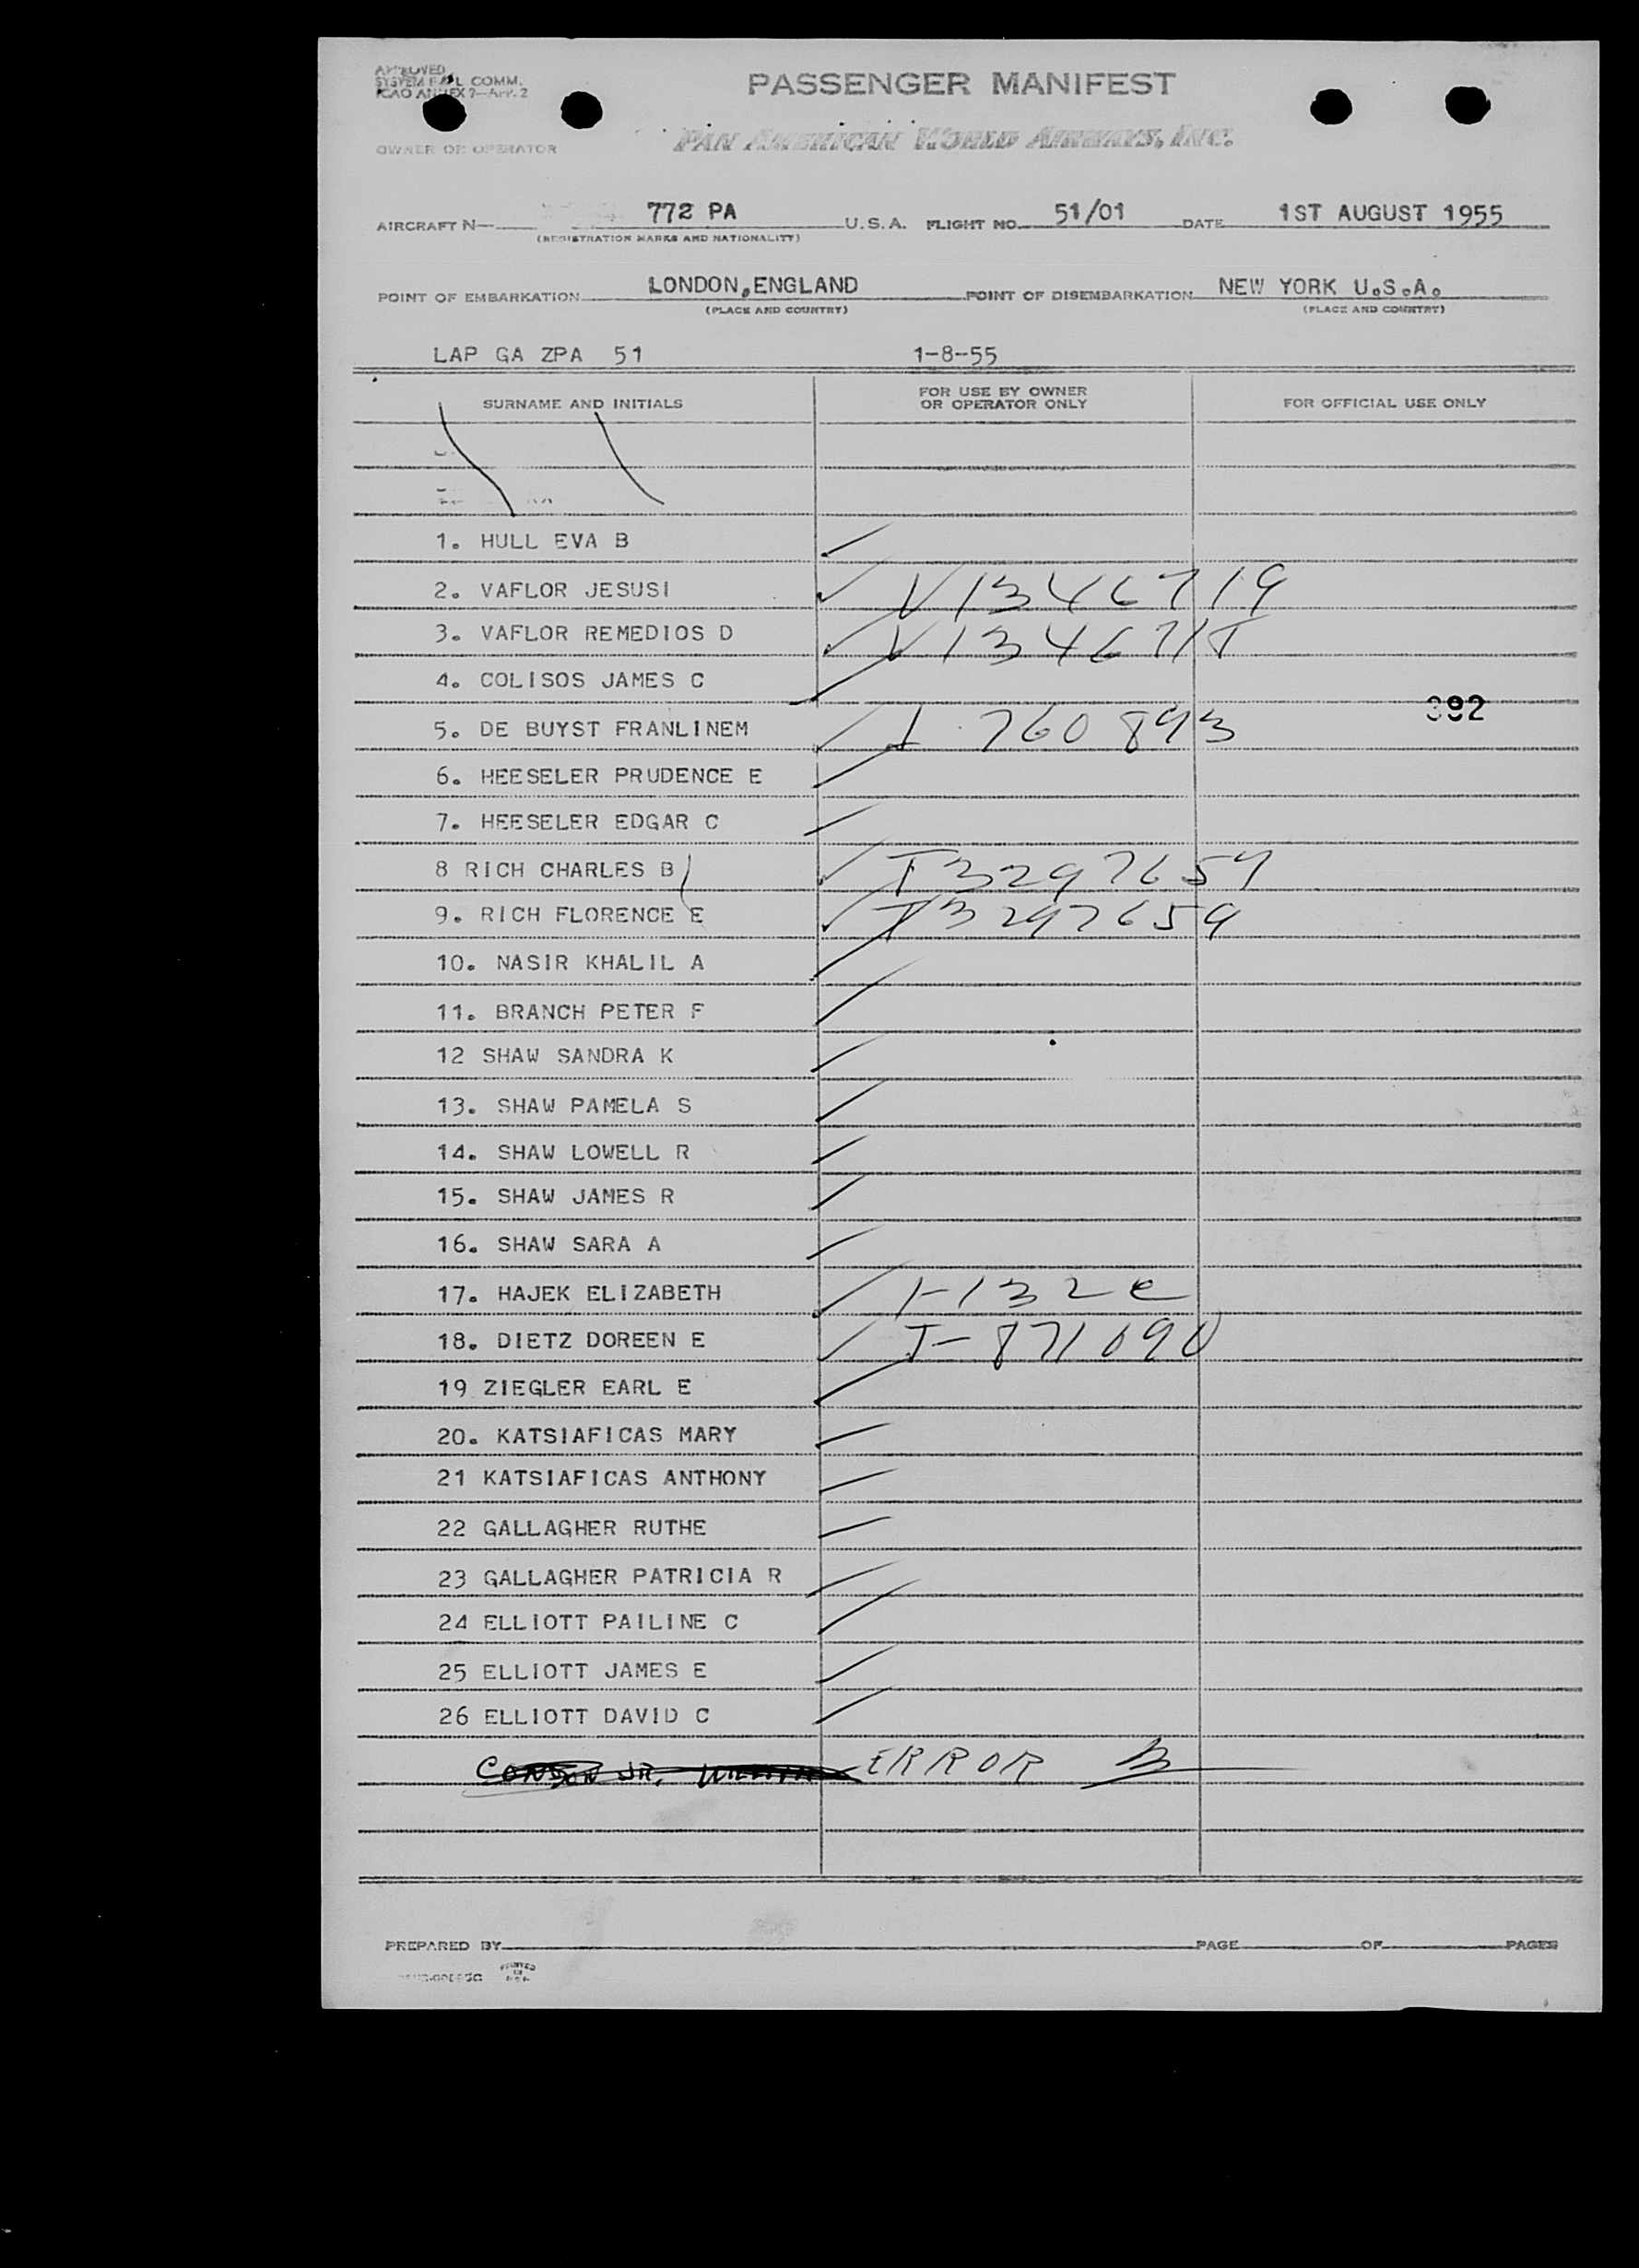 APPROVED
SYSTEM FAL COMM.
ICAO ANNEX 9—APP. 2
PASSENGER MANIFEST
OWNER OR OPERATOR
PAN AMERICAN WORLD AIRWAYS, INC.
AIRCRAFT N— 772 PA U.S.A. FLIGHT NO. 51/01 DATE 1ST AUGUST 1955
(REGISTRATION MARKS AND NATIONALITY)
POINT OF EMBARKATION LONDON,ENGLAND POINT OF DISEMBARKATION NEW YORK U.S.A.
(PLACE AND COUNTRY) (PLACE AND COUNTRY)
LAP GA ZPA 51 1-8-55
SURNAME AND INITIALS FOR USE BY OWNER OR OPERATOR ONLY FOR OFFICIAL USE ONLY
1. HULL EVA B
2. VAFLOR JESUSI V1346719
3. VAFLOR REMEDIOS D
4. COLISOS JAMES C
392
5. DE BUYST FRANLINEM I 760893
6. HEESELER PRUDENCE E
7. HEESELER EDGAR C
8 RICH CHARLES B
9. RICH FLORENCE E
10. NASIR KHALIL A
11. BRANCH PETER F
12 SHAW SANDRA K
13. SHAW PAMELA S
14. SHAW LOWELL R
15. SHAW JAMES R
16. SHAW SARA A
17. HAJEK ELIZABETH
18. DIETZ DOREEN E I-871090
19 ZIEGLER EARL E
20. KATSIAFICAS MARY
21 KATSIAFICAS ANTHONY
22 GALLAGHER RUTHE
23 GALLAGHER PATRICIA R
24 ELLIOTT PAILINE C
25 ELLIOTT JAMES E
26 ELLIOTT DAVID C
JR. ERROR
PREPARED BY PAGE OF PAGES
PRINTED IN U.S.A.